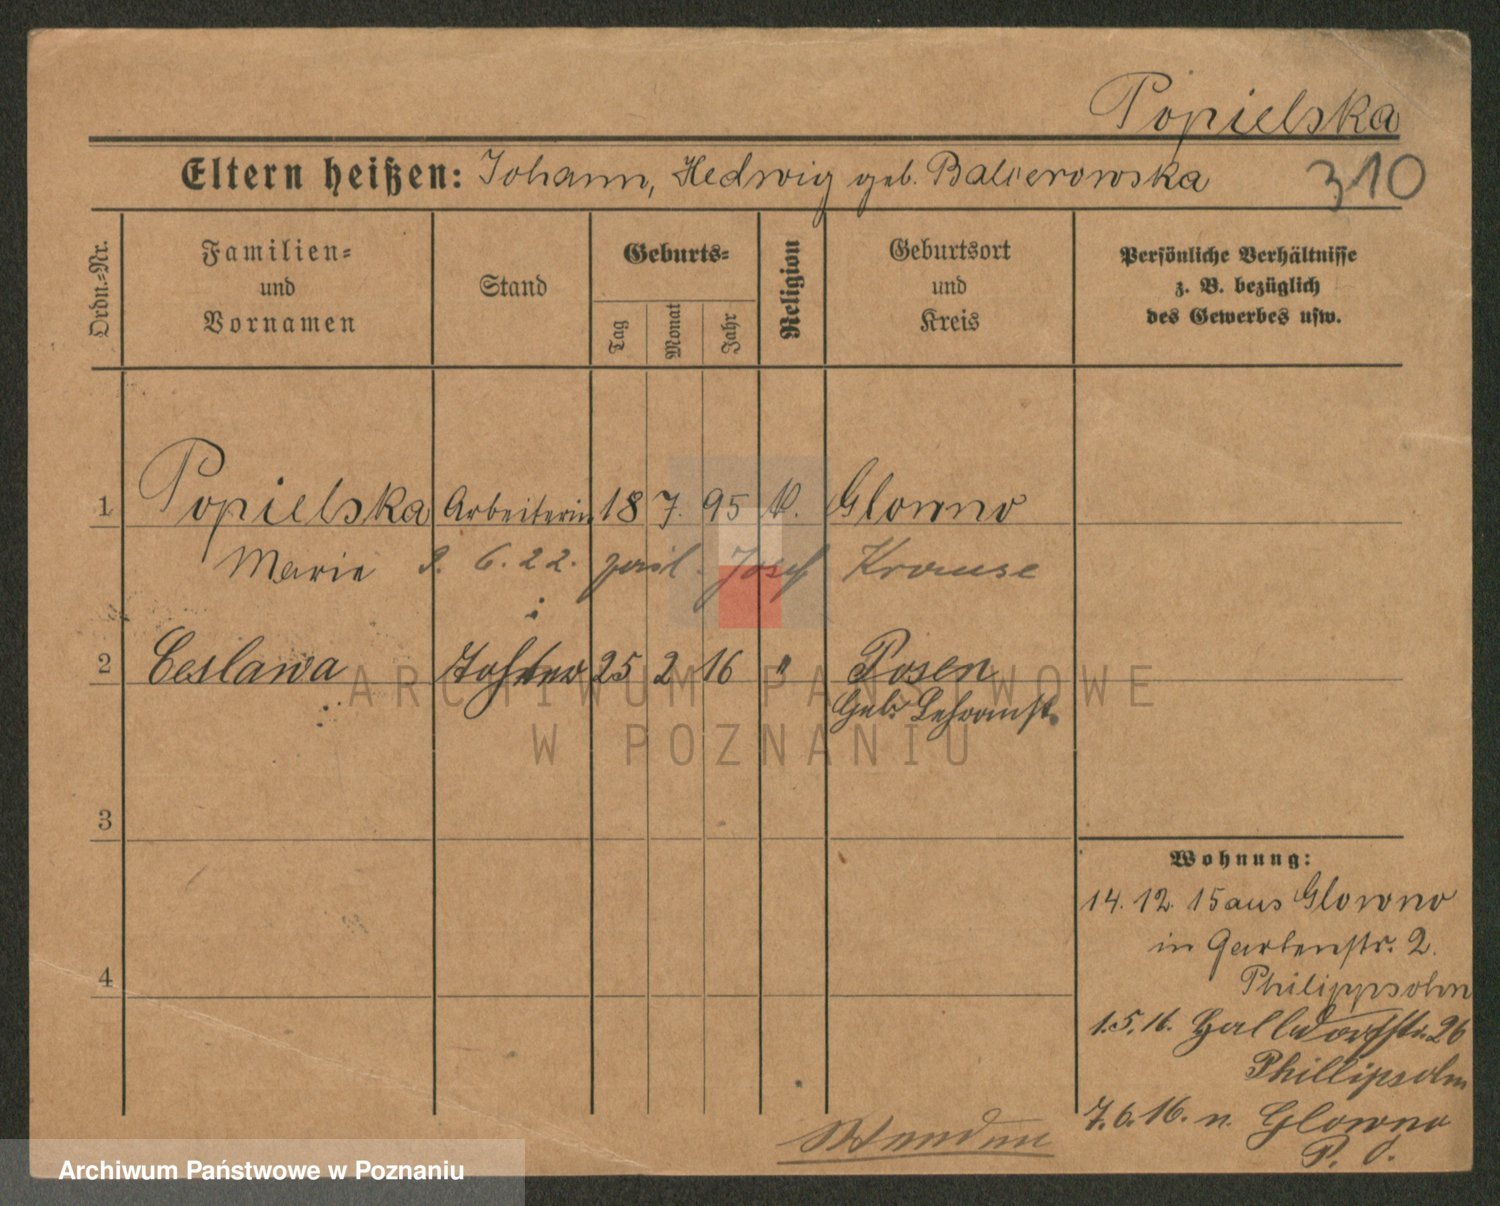 Popielska
Eltern heißen: Johann, Hedwig geb. Balcerowska
310
Ordn.=Nr.
Familien=
und
Vornamen
Stand
Geburts=
Tag
Monat
Jahr
Religion
Geburtsort
und
Kreis
Persönliche Verhältnisse
z. B. bezüglich
des Gewerbes usw.
1 Popielska Arbeiterin 18 7. 95 k. Glowno
Marie 9. 6. 22. Josef Krause
2 Ceslawa Tochter 25 2 16 " Posen
Geb. Lehranst.
ARCHIWUM PAŃSTWOWE
W POZNANIU
3
4
Wohnung:
14. 12. 15 aus Glowno
in Gartenstr. 2.
Philippsohn
1.5.16. 26
Phillipsohn
7.6.16. n. Glowno
P. d.
Archiwum Państwowe w Poznaniu